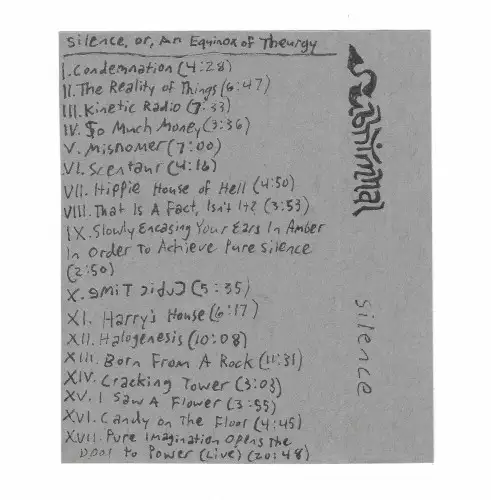 Silence, or, An Equinox of Theurgy
I. Condemnation (4:28)
II. The Reality of Things (6:47)
III. Kinetic Radio (7:33)
IV. $o Much Money (3:36)
V. Misnomer (7:00)
VI. Scentaur (4:16)
VII. Hippie House of Hell (4:50)
VIII. That Is A Fact, Isn't It? (3:53)
IX. Slowly Encasing Your Ears In Amber
In Order To Achieve Pure Silence
(2:50)
X. Cubic Time (5:35)
XI. Harry's House (6:17)
XII. Halogenesis (10:08)
XIII. Born From A Rock (11:31)
XIV. Cracking Tower (3:03)
XV. I Saw A Flower (3:55)
XVI. Candy on The Floor (4:45)
XVII. Pure Imagination Opens The
Door to Power (Live) (20:48)
silence